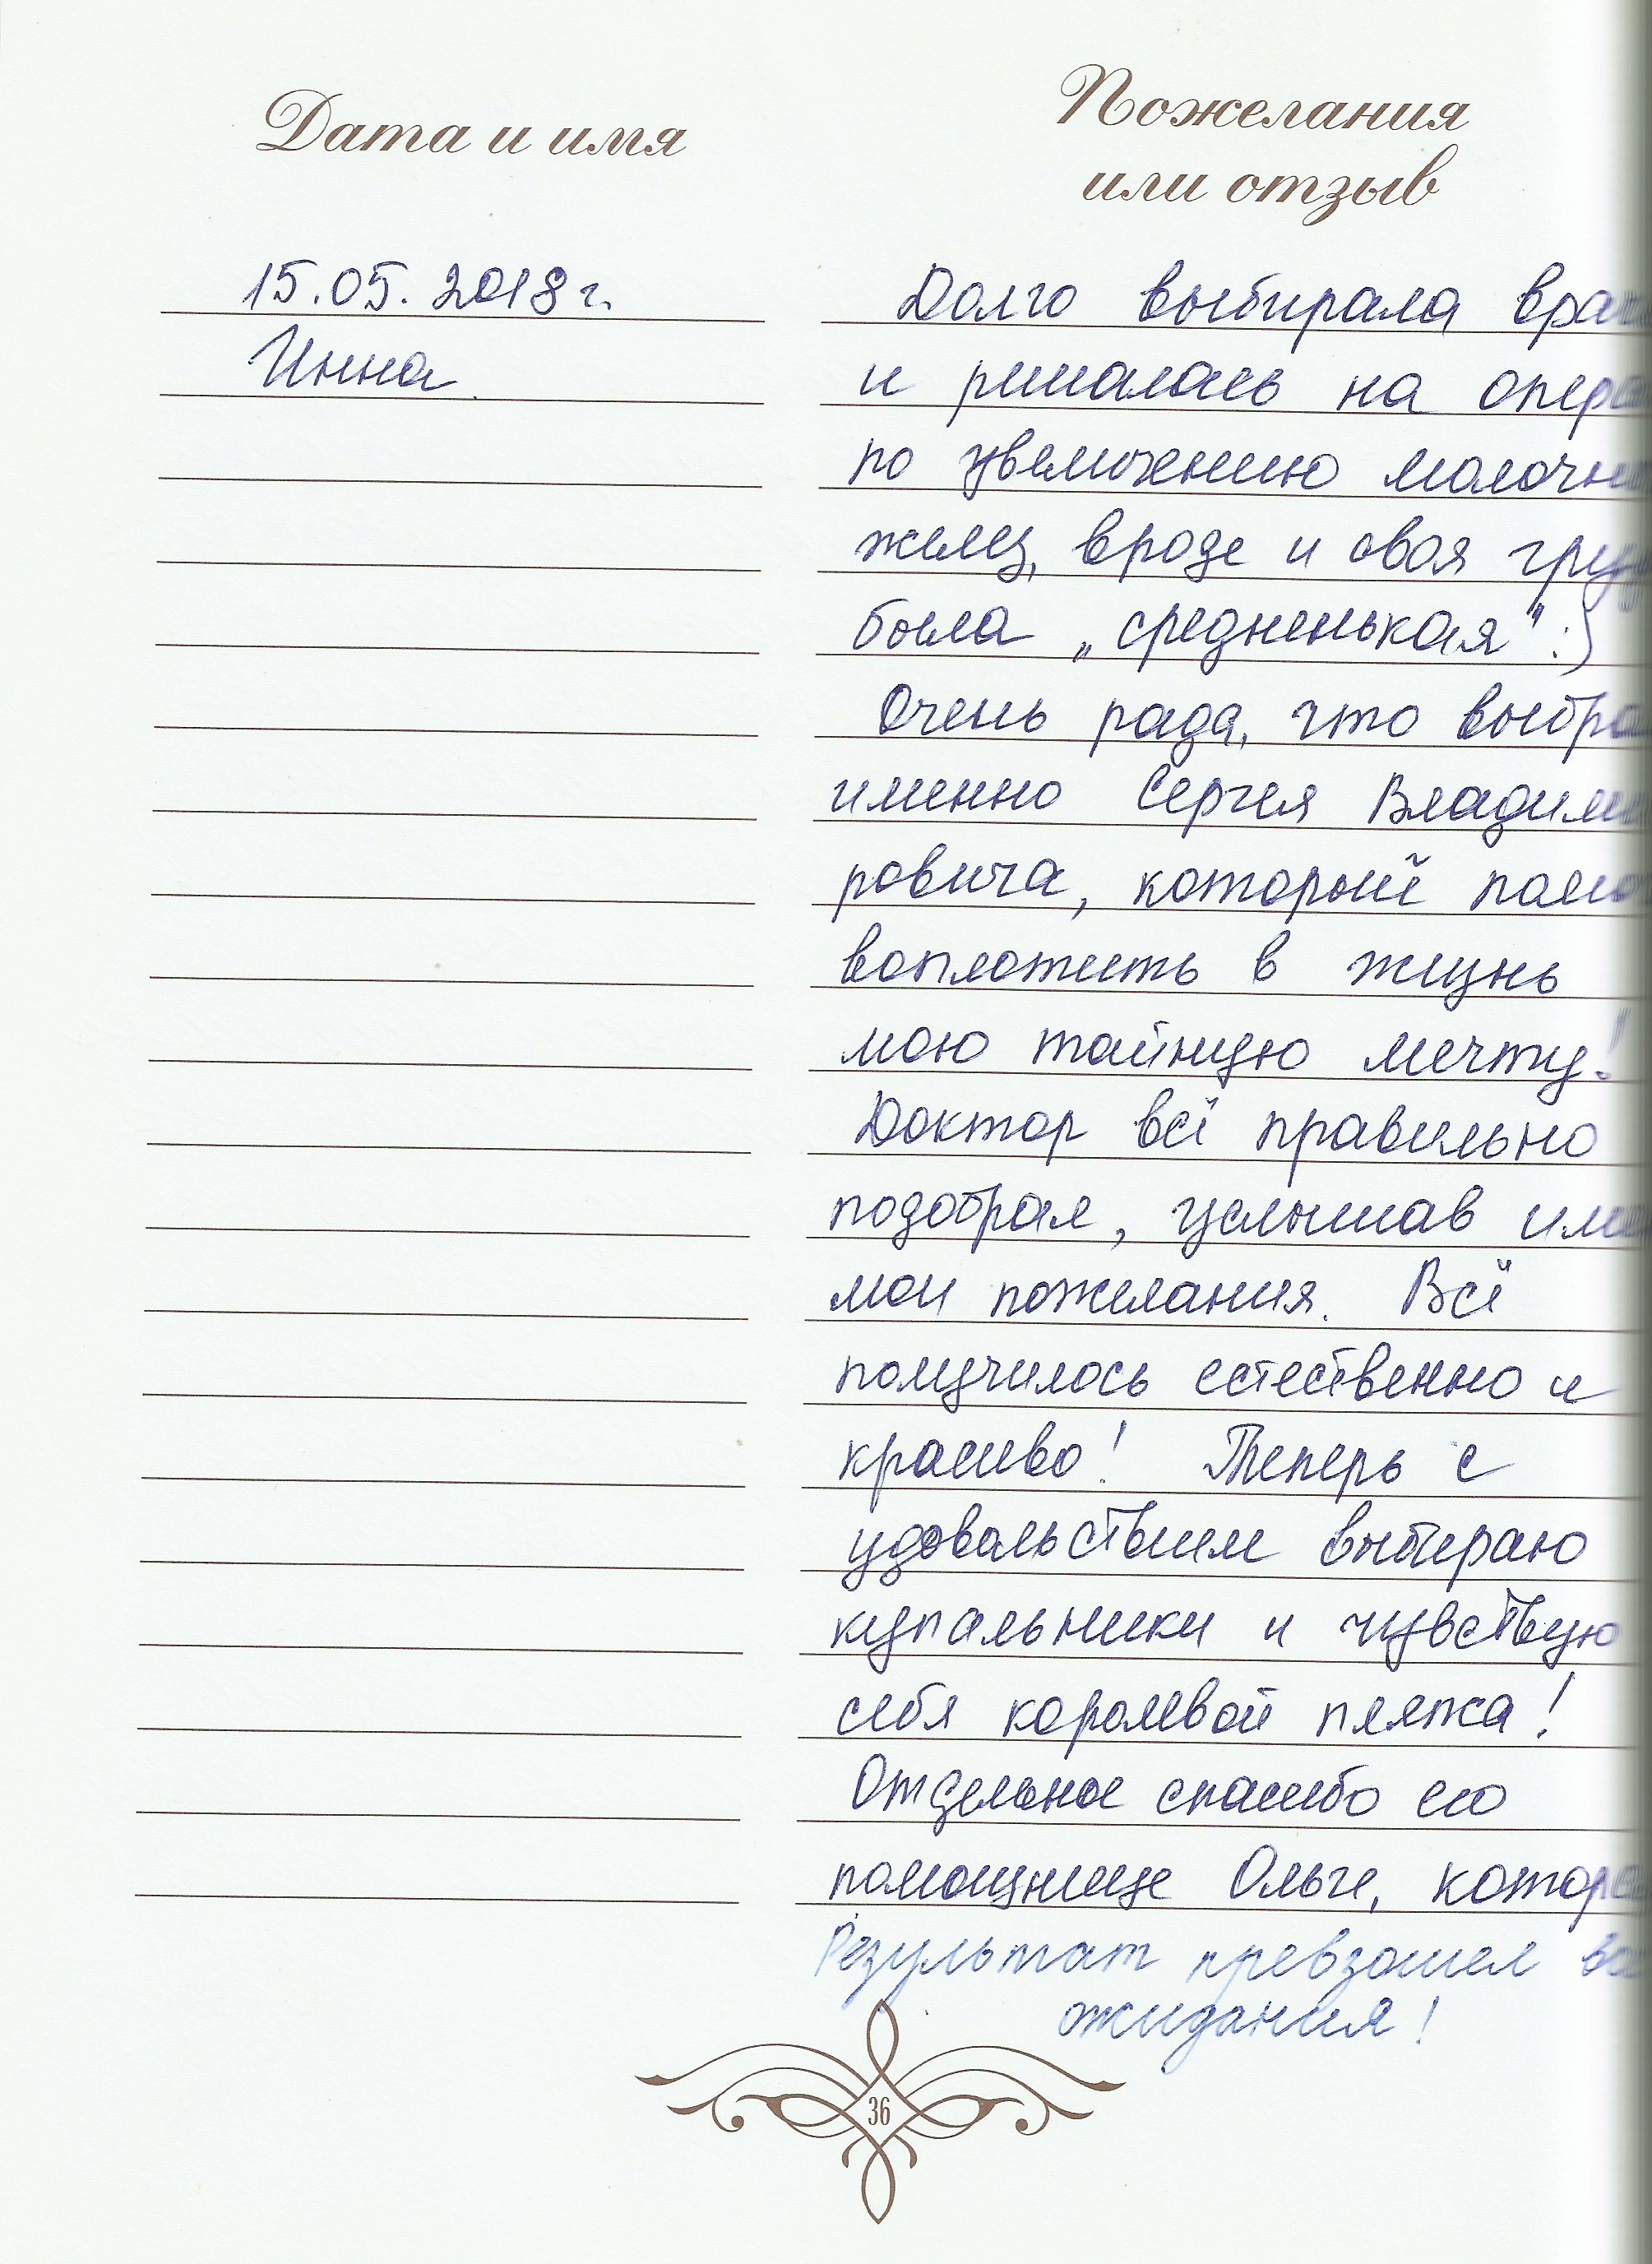 Дата и имя
Пожелания
или отзыв
15.05.2018 г.
Инна.
Долго выбирала врача
и решалась на опера
по увеличению молочн
желез, вроде и своя груд
была „средненькая“ :)
Очень рада, что выбра
именно Сергея Владими
ровича, который помо
воплотить в жизнь
мою тайную мечту!
Доктор всё правильно
подобрал, услышав име
мои пожелания. Всё
получилось естественно и
красиво! Теперь с
удовольствием выбираю
купальники и чувствую
себя королевой пляжа!
Отдельное спасибо его
помощнице Ольге, котор
Результат превзошел все
ожидания!
36